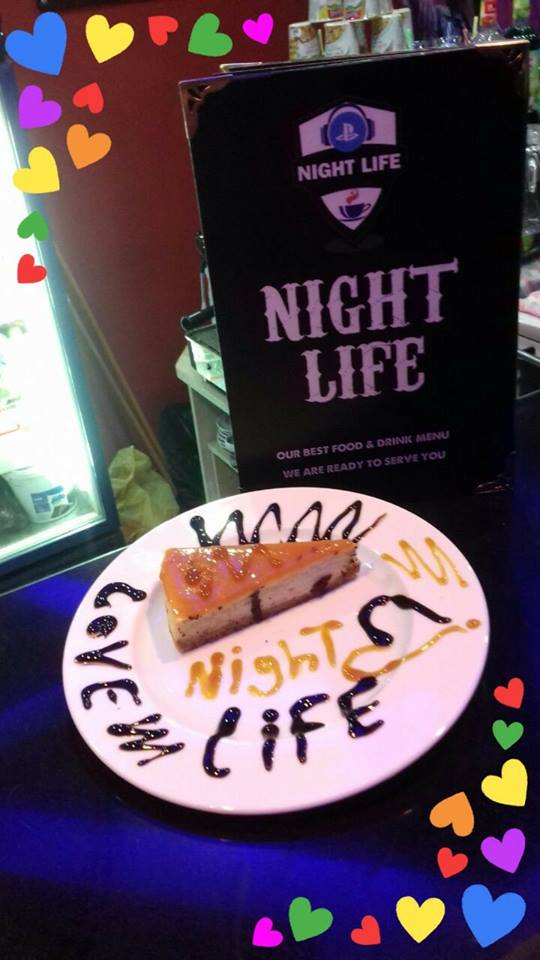 NIGHT LIFE
NIGHT
LIFE
OUR BEST FOOD & DRINK MENU
WE ARE READY TO SERVE YOU
LOVE
NighT
LiFE